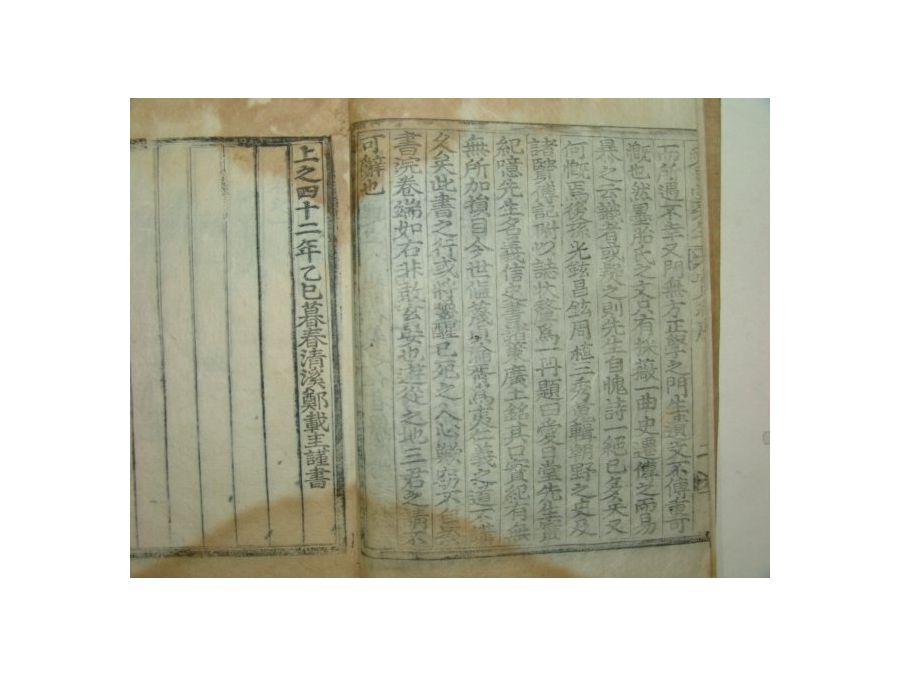 而所遇不幸又門無方正學之門生遺文不傳重可
慨也然墨胎氏之文只有採薇一曲史遷傳之而易
暴之云識者或疑之則先生自愧詩一絕已全矣又
何慨焉後孫光鉉昌鉉用植三秀蒐輯朝野之史及
諸賢傳記附以誌狀釐爲一冊題曰愛日堂先生實
紀噫先生名義信史書諸策廣土銘其口實紀有無
無所加損且今世值蔑倫舊爲夷仁義之道不講
久矣此書之行或將警醒已死之人心歟窃不自
書浣卷端如右非敢玄晏也遊從之地三君之請不
可辭也
上之四十二年乙巳暮春清溪鄭載圭謹書